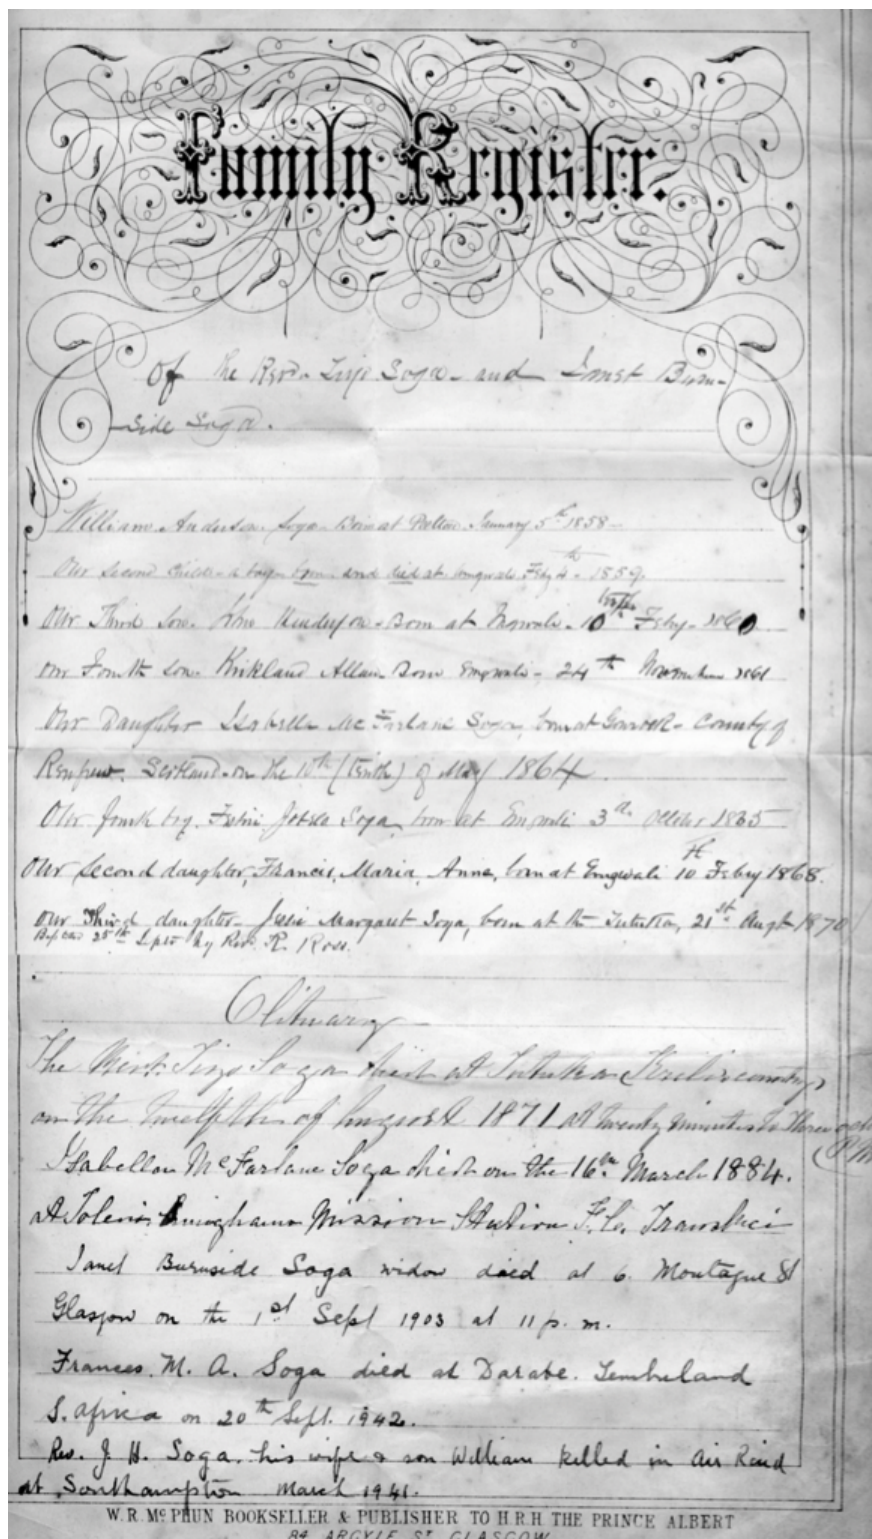 Family Register.
Of the Revd. Tiyo Soga - and Janet Burn-
side Soga.
William Anderson Soga Born at Peelton January 5th 1858
Our second child - a boy born and died at Emgwali Feby 4th 1859.
Our Third Son. John Henderson Born at Emgwali - 10th Feby - 1860
Our Fourth son. Kirkland Allan Born Emgwali - 24th November 1861
Our Daughter Isabella McFarlane Soga, born at Gourock - County of
Renfrew. Scotland - on the 10th (tenth) of May 1864.
Our fourth boy. Festiri Jotelo Soga, born at Emgwali 3d. October 1865
Our second daughter, Francis, Maria, Anne, born at Emgwali 10th Febry 1868.
Our Third daughter - Jessie Margaret Soga, born at the Tutuka, 21st. Augt 1870
25th Sept by Revd. R. Ross.
Obituary
The Revd. Tiyo Soga died at Tutuka Kreli's country,
on the twelfth of August 1871 at twenty minutes to Three
P.M
Isabella McFarlane Soga died on the 16th. March 1884.
at Mission Station F.C. Transkei
Janet Burnside Soga widow died at 6. Montague St
Glasgow on the 1st Sept 1903 at 11 p.m.
Frances. M. A. Soga died at Darabe. Tembuland
S. Africa on 20th Sept. 1942.
Rev. J. H. Soga, his wife & son William killed in Air Raid
at Southampton March 1941.
W. R. McPHUN BOOKSELLER & PUBLISHER TO H.R.H THE PRINCE ALBERT
84 ARGYLE ST GLASGOW